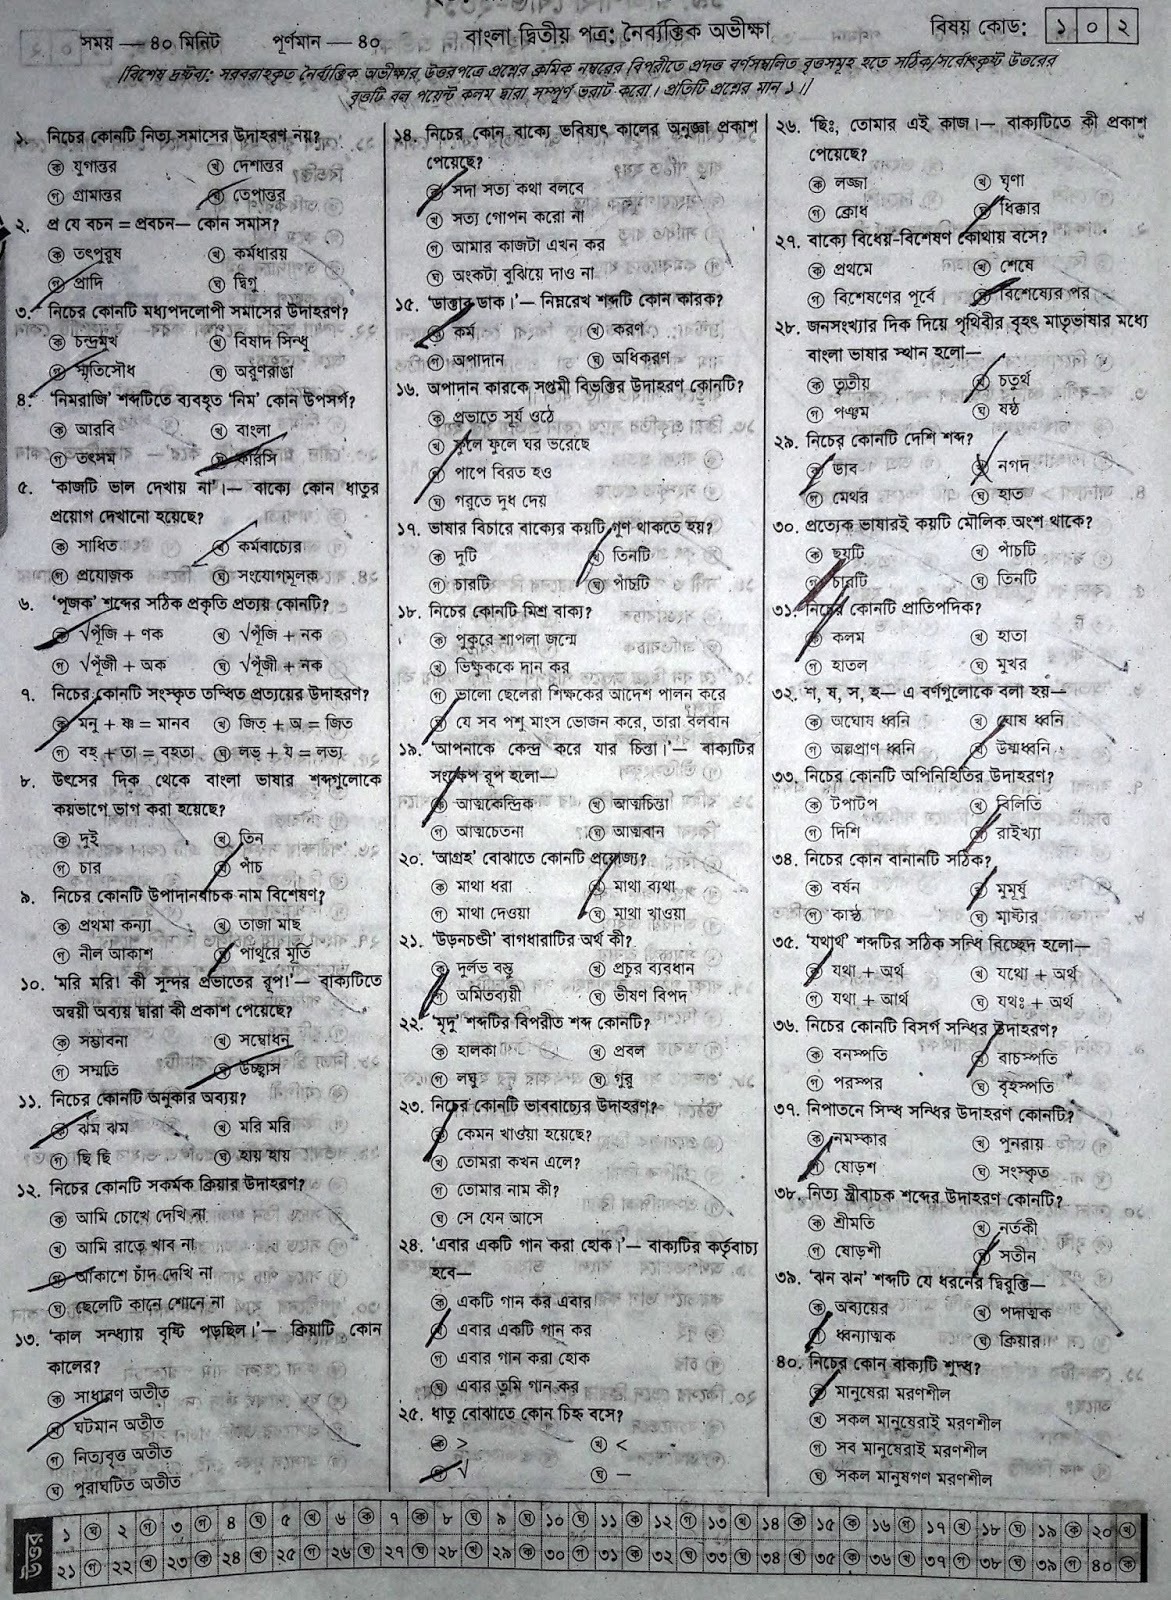 সময় — ৪০ মিনিট
পূর্ণমান — ৪০
বাংলা দ্বিতীয় পত্র: নৈর্ব্যক্তিক অভীক্ষা
বিষয় কোড: ১ ০ ২
[বিশেষ দ্রষ্টব্য: সরবরাহকৃত নৈর্ব্যক্তিক অভীক্ষার উত্তরপত্রে প্রশ্নের ক্রমিক নম্বরের বিপরীতে প্রদত্ত বর্ণসম্বলিত বৃত্তসমূহ হতে সঠিক/সর্বোৎকৃষ্ট উত্তরের
বৃত্তটি বল পয়েন্ট কলম দ্বারা সম্পূর্ণ ভরাট করো। প্রতিটি প্রশ্নের মান ১।]
১. নিচের কোনটি নিত্য সমাসের উদাহরণ নয়?
ক যুগান্তর খ দেশান্তর
গ গ্রামান্তর ঘ তেপান্তর
২. প্র যে বচন = প্রবচন— কোন সমাস?
ক তৎপুরুষ খ কর্মধারয়
গ প্রাদি ঘ দ্বিগু
৩. নিচের কোনটি মধ্যপদলোপী সমাসের উদাহরণ?
ক চন্দ্রমুখ খ বিষাদ সিন্ধু
গ স্মৃতিসৌধ ঘ অরুণরাঙা
৪. ‘নিমরাজি’ শব্দটিতে ব্যবহৃত ‘নিম’ কোন উপসর্গ?
ক আরবি খ বাংলা
গ তৎসম ঘ ফারসি
৫. ‘কাজটি ভাল দেখায় না’।— বাক্যে কোন ধাতুর
প্রয়োগ দেখানো হয়েছে?
ক সাধিত খ কর্মবাচ্যের
গ প্রযোজক ঘ সংযোগমূলক
৬. ‘পূজক’ শব্দের সঠিক প্রকৃতি প্রত্যয় কোনটি?
ক √পূঁজি + ণক খ √পূঁজি + নক
গ √পূঁজী + অক ঘ √পূঁজী + নক
৭. নিচের কোনটি সংস্কৃত তদ্ধিত প্রত্যয়ের উদাহরণ?
ক মনু + ষ্ণ = মানব খ জিত্ + অ = জিত
গ বহ্ + তা = বহতা ঘ লভ্ + য = লভ্য
৮. উৎসের দিক থেকে বাংলা ভাষার শব্দগুলোকে
কয়ভাগে ভাগ করা হয়েছে?
ক দুই খ তিন
গ চার ঘ পাঁচ
৯. নিচের কোনটি উপাদানবাচক নাম বিশেষণ?
ক প্রথমা কন্যা খ তাজা মাছ
গ নীল আকাশ ঘ পাথুরে মূর্তি
১০. ‘মরি মরি! কী সুন্দর প্রভাতের রূপ!’— বাক্যটিতে
অন্বয়ী অব্যয় দ্বারা কী প্রকাশ পেয়েছে?
ক সম্ভাবনা খ সম্বোধন
গ সম্মতি ঘ উচ্ছ্বাস
১১. নিচের কোনটি অনুকার অব্যয়?
ক ঝম ঝম খ মরি মরি
গ ছি ছি ঘ হায় হায়
১২. নিচের কোনটি সকর্মক ক্রিয়ার উদাহরণ?
ক আমি চোখে দেখি না
খ আমি রাতে খাব না
গ আকাশে চাঁদ দেখি না
ঘ ছেলেটি কানে শোনে না
১৩. ‘কাল সন্ধ্যায় বৃষ্টি পড়ছিল।’— ক্রিয়াটি কোন
কালের?
ক সাধারণ অতীত
খ ঘটমান অতীত
গ নিত্যবৃত্ত অতীত
ঘ পুরাঘটিত অতীত
১৪. নিচের কোন বাক্যে ভবিষ্যৎ কালের অনুজ্ঞা প্রকাশ
পেয়েছে?
ক সদা সত্য কথা বলবে
খ সত্য গোপন করো না
গ আমার কাজটা এখন কর
ঘ অংকটা বুঝিয়ে দাও না
১৫. ‘ডাক্তার ডাক।’— নিম্নরেখ শব্দটি কোন কারক?
ক কর্ম খ করণ
গ অপাদান ঘ অধিকরণ
১৬. অপাদান কারকে সপ্তমী বিভক্তির উদাহরণ কোনটি?
ক প্রভাতে সূর্য ওঠে
খ ফুলে ফুলে ঘর ভরেছে
গ পাপে বিরত হও
ঘ গরুতে দুধ দেয়
১৭. ভাষার বিচারে বাক্যের কয়টি গুণ থাকতে হয়?
ক দুটি খ তিনটি
গ চারটি ঘ পাঁচটি
১৮. নিচের কোনটি মিশ্র বাক্য?
ক পুকুরে শাপলা জন্মে
খ ভিক্ষুককে দান কর
গ ভালো ছেলেরা শিক্ষকের আদেশ পালন করে
ঘ যে সব পশু মাংস ভোজন করে, তারা বলবান
১৯. ‘আপনাকে কেন্দ্র করে যার চিন্তা।’— বাক্যটির
সংক্ষেপ রূপ হলো—
ক আত্মকেন্দ্রিক খ আত্মচিন্তা
গ আত্মচেতনা ঘ আত্মবান
২০. ‘আগ্রহ’ বোঝাতে কোনটি প্রযোজ্য?
ক মাথা ধরা খ মাথা ব্যথা
গ মাথা দেওয়া ঘ মাথা খাওয়া
২১. ‘উড়নচণ্ডী’ বাগধারাটির অর্থ কী?
ক দুর্লভ বস্তু খ প্রচুর ব্যবধান
গ অমিতব্যয়ী ঘ ভীষণ বিপদ
২২. ‘মৃদু’ শব্দটির বিপরীত শব্দ কোনটি?
ক হালকা খ প্রবল
গ লঘু ঘ গুরু
২৩. নিচের কোনটি ভাববাচ্যের উদাহরণ?
ক কেমন খাওয়া হয়েছে?
খ তোমরা কখন এলে?
গ তোমার নাম কী?
ঘ সে যেন আসে
২৪. ‘এবার একটি গান করা হোক।’— বাক্যটির কর্তৃবাচ্য
হবে—
ক একটি গান কর এবার
খ এবার একটি গান কর
গ এবার গান করা হোক
ঘ এবার তুমি গান কর
২৫. ধাতু বোঝাতে কোন চিহ্ন বসে?
ক > খ <
গ √ ঘ —
২৬. ‘ছিঃ, তোমার এই কাজ।— বাক্যটিতে কী প্রকাশ
পেয়েছে?
ক লজ্জা খ ঘৃণা
গ ক্রোধ ঘ ধিক্কার
২৭. বাক্যে বিধেয়-বিশেষণ কোথায় বসে?
ক প্রথমে খ শেষে
গ বিশেষণের পূর্বে ঘ বিশেষ্যের পর
২৮. জনসংখ্যার দিক দিয়ে পৃথিবীর বৃহৎ মাতৃভাষার মধ্যে
বাংলা ভাষার স্থান হলো—
ক তৃতীয় খ চতুর্থ
গ পঞ্চম ঘ ষষ্ঠ
২৯. নিচের কোনটি দেশি শব্দ?
ক ডাব খ নগদ
গ মেথর ঘ হাত
৩০. প্রত্যেক ভাষারই কয়টি মৌলিক অংশ থাকে?
ক ছয়টি খ পাঁচটি
গ চারটি ঘ তিনটি
৩১. নিচের কোনটি প্রাতিপদিক?
ক কলম খ হাতা
গ হাতল ঘ মুখর
৩২. শ, ষ, স, হ— এ বর্ণগুলোকে বলা হয়—
ক অঘোষ ধ্বনি খ ঘোষ ধ্বনি
গ অল্পপ্রাণ ধ্বনি ঘ উষ্মধ্বনি
৩৩. নিচের কোনটি অপিনিহিতির উদাহরণ?
ক টপাটপ খ বিলিতি
গ দিশি ঘ রাইখ্যা
৩৪. নিচের কোন বানানটি সঠিক?
ক বর্ষন খ মুমূর্ষু
গ কাষ্ঠ ঘ মাষ্টার
৩৫. ‘যথার্থ’ শব্দটির সঠিক সন্ধি বিচ্ছেদ হলো—
ক যথা + অর্থ খ যথো + অর্থ
গ যথা + আর্থ ঘ যথঃ + অর্থ
৩৬. নিচের কোনটি বিসর্গ সন্ধির উদাহরণ?
ক বনস্পতি খ বাচস্পতি
গ পরস্পর ঘ বৃহস্পতি
৩৭. নিপাতনে সিদ্ধ সন্ধির উদাহরণ কোনটি?
ক নমস্কার খ পুনরায়
গ ষোড়শ ঘ সংস্কৃত
৩৮. নিত্য স্ত্রীবাচক শব্দের উদাহরণ কোনটি?
ক শ্রীমতি খ নর্তকী
গ ষোড়শী ঘ সতীন
৩৯. ‘ঝন ঝন’ শব্দটি যে ধরনের দ্বিরুক্তি—
ক অব্যয়ের খ পদাত্মক
গ ধ্বন্যাত্মক ঘ ক্রিয়ার
৪০. নিচের কোন বাক্যটি শুদ্ধ?
ক মানুষেরা মরণশীল
খ সকল মানুষেরাই মরণশীল
গ সব মানুষেরাই মরণশীল
ঘ সকল মানুষগণ মরণশীল
উত্তর
১ ঘ ২ গ ৩ গ ৪ ঘ ৫ খ ৬ ক ৭ ক ৮ ঘ ৯ ঘ ১০ ঘ ১১ ক ১২ গ ১৩ খ ১৪ ক ১৫ ক ১৬ গ ১৭ খ ১৮ ঘ ১৯ ক ২০ খ
২১ গ ২২ খ ২৩ ক ২৪ খ ২৫ গ ২৬ ঘ ২৭ ঘ ২৮ খ ২৯ ক ৩০ গ ৩১ ক ৩২ ঘ ৩৩ ঘ ৩৪ খ ৩৫ ক ৩৬ খ ৩৭ গ ৩৮ ঘ ৩৯ গ ৪০ ক